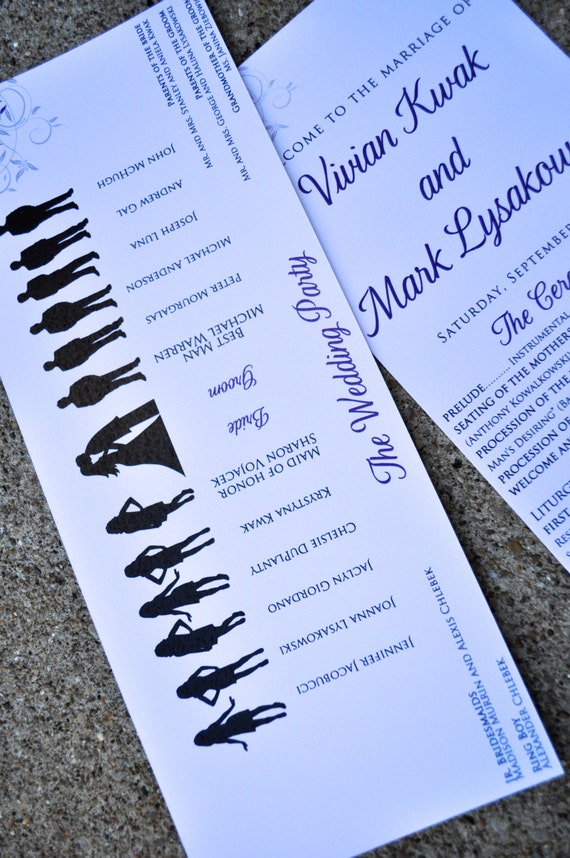 The Wedding Party
JOHN MCHUGH
ANDREW GAL
JOSEPH LUNA
MICHAEL ANDERSON
PETER MOURGALAS
BEST MAN
MICHAEL WARREN
Groom
Bride
MAID OF HONOR
SHARON VOJACEK
KRYSTYNA KWAK
CHELSIE DUPLANTY
JACLYN GIORDANO
JOANNA LYSAKOWSKI
JENNIFER JACOBUCCI
PARENTS OF THE BRIDE
MR. AND MRS. STANLEY AND ANIELA KWAK
PARENTS OF THE GROOM
MR. AND MRS. GEORGE AND HALINA LYSAKOWSKI
GRANDMOTHER OF THE GROOM
MS. JANINA
JR. BRIDESMAIDS
MADISON MURRIN AND ALEXIS CHLEBEK
RING BOY
ALEXANDER CHLEBEK
COME TO THE MARRIAGE OF
Vivian Kwak
and
Mark Lysakow
SATURDAY, SEPTEMBER
The Cer
PRELUDE.......... INSTRUMENTAL
SEATING OF THE MOTHERS
(ANTHONY KOWALKOWSKI
PROCESSION OF THE
MAN'S DESIRING" (BA
PROCESSION OF
WELCOME AN
LITURG
FIRST
RES